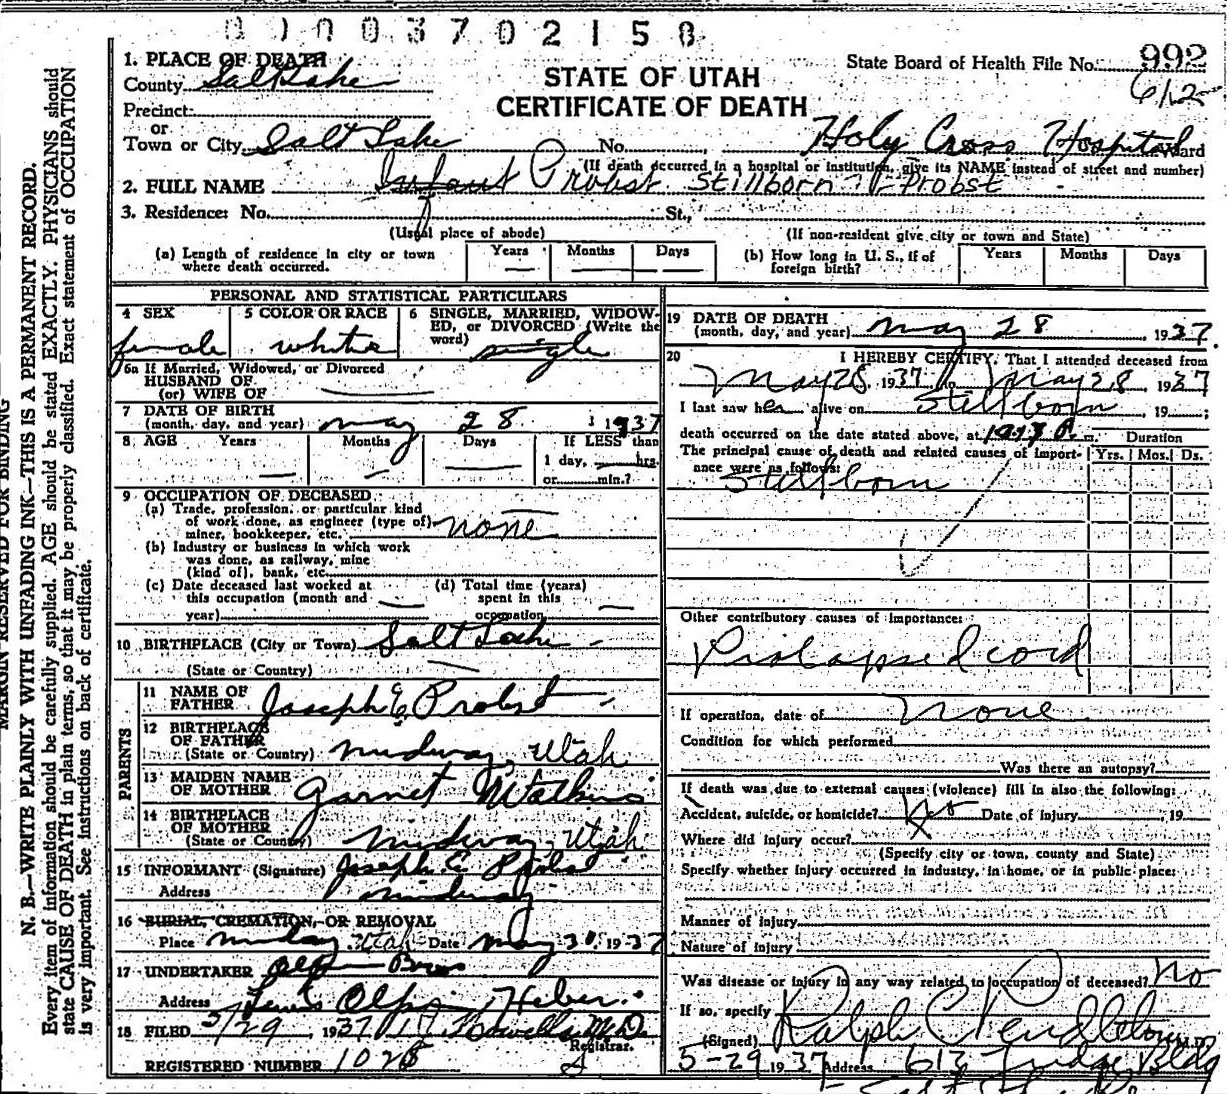 0 1 0 0 3 7 0 2 1 5 8
1. PLACE OF DEATH
County Salt Lake
Precinct
or
Town or City Salt Lake No. Holy Cross Hospital Ward
(If death occurred in a hospital or institution, give its NAME instead of street and number)
STATE OF UTAH
CERTIFICATE OF DEATH
State Board of Health File No. 992
612
2. FULL NAME Infant Probst Stillborn Probst
3. Residence: No. St.,
(Usual place of abode) (If non-resident give city or town and State)
(a) Length of residence in city or town where death occurred. Years Months Days
(b) How long in U. S., if of foreign birth? Years Months Days
PERSONAL AND STATISTICAL PARTICULARS
4 SEX female
5 COLOR OR RACE white
6 SINGLE, MARRIED, WIDOW-
ED, or DIVORCED (Write the
word) single
6a If Married, Widowed, or Divorced
HUSBAND OF
(or) WIFE OF
7 DATE OF BIRTH
(month, day, and year) may 28 1937
8 AGE Years Months Days If LESS than
1 day, hrs.
or min.?
9 OCCUPATION OF DECEASED
(a) Trade, profession, or particular kind
of work done, as engineer (type of)
miner, bookkeeper, etc. none
(b) Industry or business in which work
was done, as railway, mine
(kind of), bank, etc.
(c) Date deceased last worked at
this occupation (month and
year)
(d) Total time (years)
spent in this
occupation
10 BIRTHPLACE (City or Town) Salt Lake
(State or Country)
PARENTS
11 NAME OF
FATHER Joseph E Probst
12 BIRTHPLACE
OF FATHER
(State or Country) midway, Utah
13 MAIDEN NAME
OF MOTHER Garnet Watkins
14 BIRTHPLACE
OF MOTHER
(State or Country) midway, Utah
15 INFORMANT (Signature) Joseph E. Probst
Address midway
16 BURIAL, CREMATION, OR REMOVAL
Place midway Utah Date may 30, 1937
17 UNDERTAKER Olpin Bros
Address Lewis Olpin Heber.
18 FILED 5/29 1937 M.D.
Registrar.
REGISTERED NUMBER 1028
19 DATE OF DEATH
(month, day, and year) may 28 1937
20 I HEREBY CERTIFY, That I attended deceased from
May 28, 1937 to May 28 1937
I last saw her alive on Stillborn 19 ;
death occurred on the date stated above, at P. m. Duration
The principal cause of death and related causes of import-
ance were as follows: Yrs. Mos. Ds.
Stillborn
Other contributory causes of importance:
Prolapsed cord
If operation, date of None
Condition for which performed
Was there an autopsy?
If death was due to external causes (violence) fill in also the following:
Accident, suicide, or homicide? No Date of injury 19
Where did injury occur?
(Specify city or town, county and State)
Specify whether injury occurred in industry, in home, or in public place:
Manner of injury
Nature of injury
Was disease or injury in any way related to occupation of deceased? No
If so, specify
(Signed) Ralph C Pendleton M.D.
5-29 1937 Address 613 Judge Bldg
MARGIN RESERVED FOR BINDING
N. B.—WRITE PLAINLY WITH UNFADING INK—THIS IS A PERMANENT RECORD.
Every item of information should be carefully supplied. AGE should be stated EXACTLY. PHYSICIANS should
state CAUSE OF DEATH in plain terms, so that it may be properly classified. Exact statement of OCCUPATION
is very important. See instructions on back of certificate.